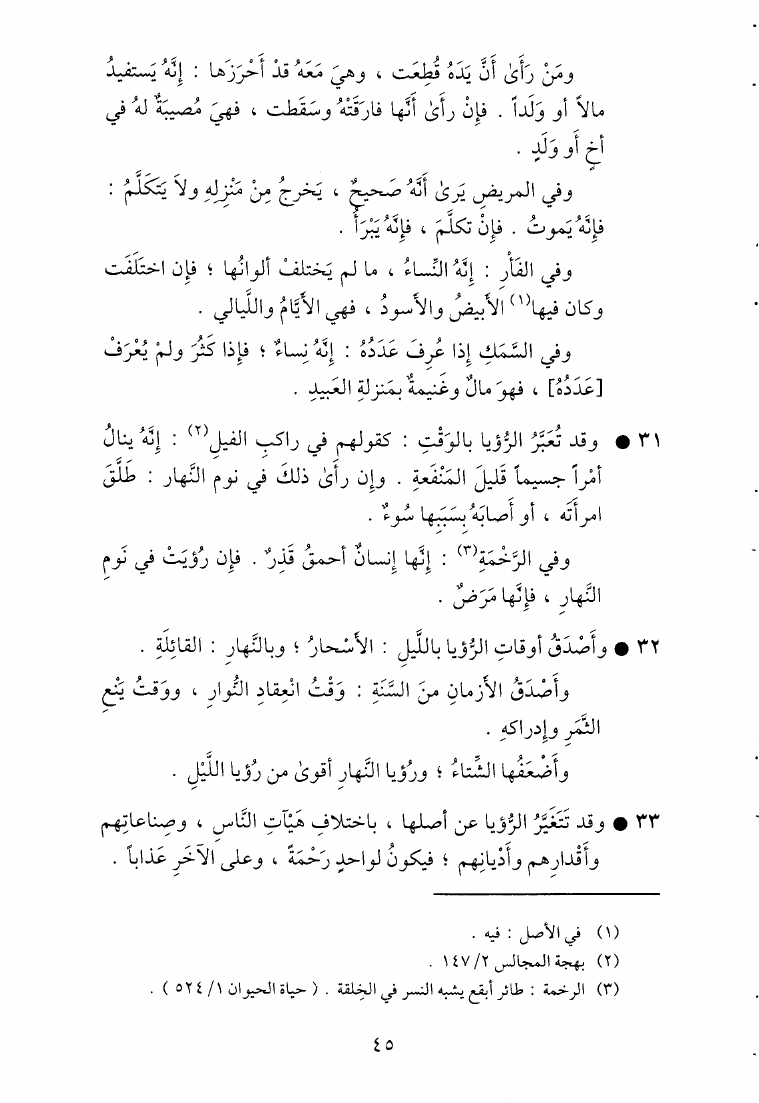 ومَنْ رَأَىٰ أَنَّ يَدَهُ قُطِعَت ، وهيَ مَعَهُ قدْ أَحْرَزَها : إِنَّهُ يَستفيدُ
مالاً أو وَلَداً . فإِنْ رأىٰ أَنَّها فارَقَتْهُ وسَقَطت ، فهيَ مُصيبَةٌ لهُ في
أخٍ أو وَلَدٍ .
وفي المريضِ يَرىٰ أَنَّهُ صَحيحٌ ، يَخرجُ مِنْ مَنْزِلِهِ ولاَ يَتَكَلَّمُ :
فإِنَّهُ يَموتُ . فإِنْ تكلَّمَ ، فإِنَّهُ يَبْرَأُ .
وفي الفَأْرِ : إِنَّهُ النِّساءُ ، ما لم يَختلفْ ألوانُها ؛ فإن اختَلَفَت
وكان فيها(١) الأبيضُ والأسودُ ، فهي الأيَّامُ واللَّيالي .
وفي السَّمَكِ إذا عُرِفَ عَدَدُهُ : إِنَّهُ نِساءٌ ؛ فإذا كَثُرَ ولمْ يُعْرَفْ
[عَدَدُهُ] ، فهوَ مالٌ وغَنيمةٌ بمَنزلةِ العَبيدِ .
٣١ ● وقد تُعَبَّرُ الرُّؤيا بالوَقْتِ : كقولهم في راكبِ الفيلِ(٢) : إِنَّهُ ينالُ
أمْراً جسيماً قَليلَ المَنْفَعةِ . وإن رأىٰ ذلكَ في نومِ النَّهار : طَلَّقَ
امرأتَه ، أو أصابَهُ بسَبَبِها سُوءٌ .
وفي الرَّخْمَةِ(٣) : إِنَّها إنسانٌ أحمقُ قَذِرٌ . فإن رُؤيَتْ في نَومِ
النَّهارِ ، فإِنَّها مَرَضٌ .
٣٢ ● وأَصْدَقُ أوقاتِ الرُّؤيا باللَّيلِ : الأسْحارُ ؛ وبالنَّهارِ : القائِلَةِ .
وأَصْدَقُ الأزمانِ منَ السَّنَةِ : وَقْتُ انْعِقادِ النُّوارِ ، ووَقتُ يَنْعِ
الثَّمَرِ وإدراكهِ .
وأَضْعَفُها الشِّتاءُ ؛ ورُؤيا النَّهارِ أقوىٰ من رُؤيا اللَّيْلِ .
٣٣ ● وقد تَتَغَيَّرُ الرُّؤيا عن أصلها ، باختلافِ هَيْآتِ النَّاسِ ، وصِناعاتِهم
وأَقْدارِهم وأَدْيانِهم ؛ فيكونُ لواحدٍ رَحْمَةً ، وعلى الآخَرِ عَذاباً .
(١) في الأصل : فيه .
(٢) بهجة المجالس ١٤٧/٢ .
(٣) الرخمة : طائر أبقع يشبه النسر في الخِلقة . ( حياة الحيوان ٥٢٤/١ ) .
٤٥